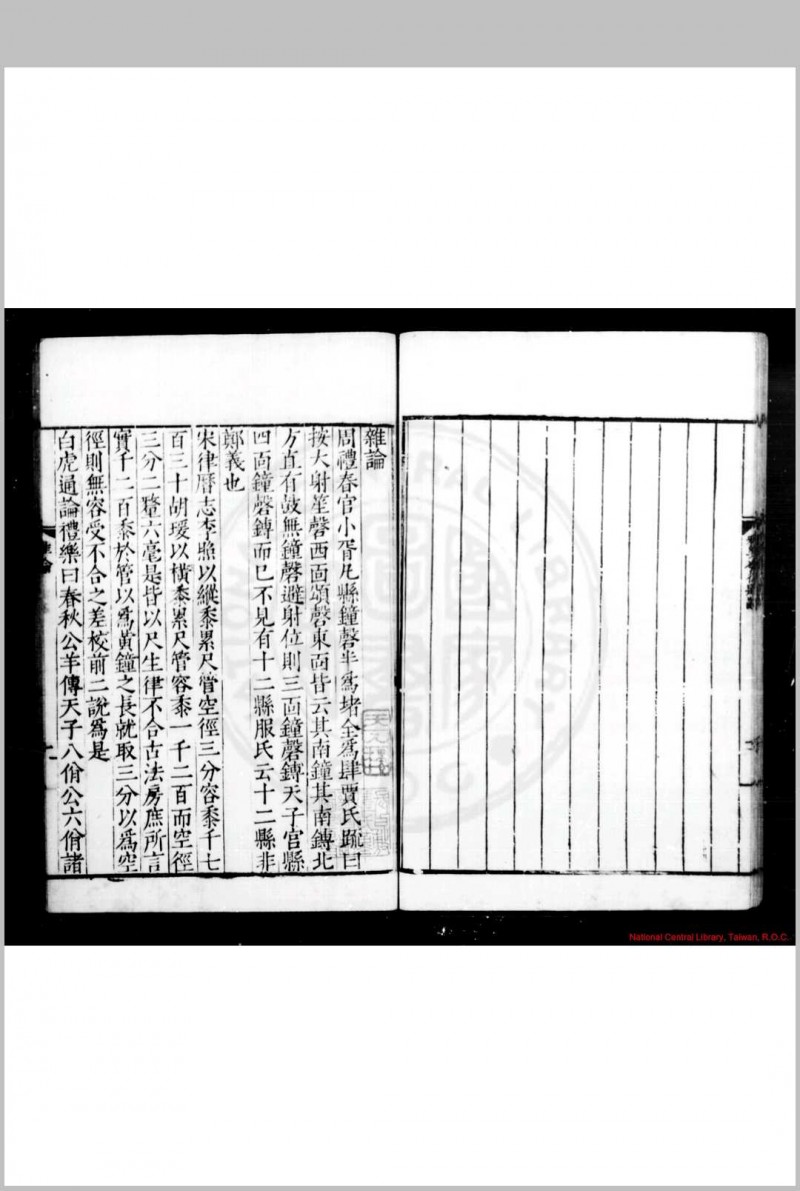 雜論
周禮春官小胥凡縣鐘磬半爲堵全爲肆賈氏䟽曰
按大射笙磬西面頌磬東面皆云其南鐘其南鑄北
方直有鼓無鐘磬避射位則三面鐘磬鑄天子宮縣
四面鐘磬鑄而已不見有十二縣服氏云十二縣非
鄭義也
宋律曆志李照以縱黍累尺管空徑三分容黍千七
百三十胡瑗以橫黍累尺管容黍一千二百而空徑
三分二釐六毫是皆以尺生律不合古法房庶所言
實千二百黍於管以爲黃鐘之長就取三分以爲空
徑則無容受不合之差校前二說爲是
白虎通論禮樂曰春秋公羊傳天子八佾公六佾諸
雜論
National Central Library, Taiwan, R.O.C.